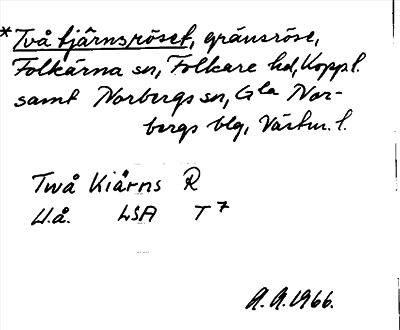 * Två tjärnsröset, gränsröse,
Folkärna sn, Folkare hd, Koppl.
samt Norbergs sn, Gla Nor-
bergs blg, Västm. l.
Twå Kiärns R
U.å. LSA T7
A.A. 1966.